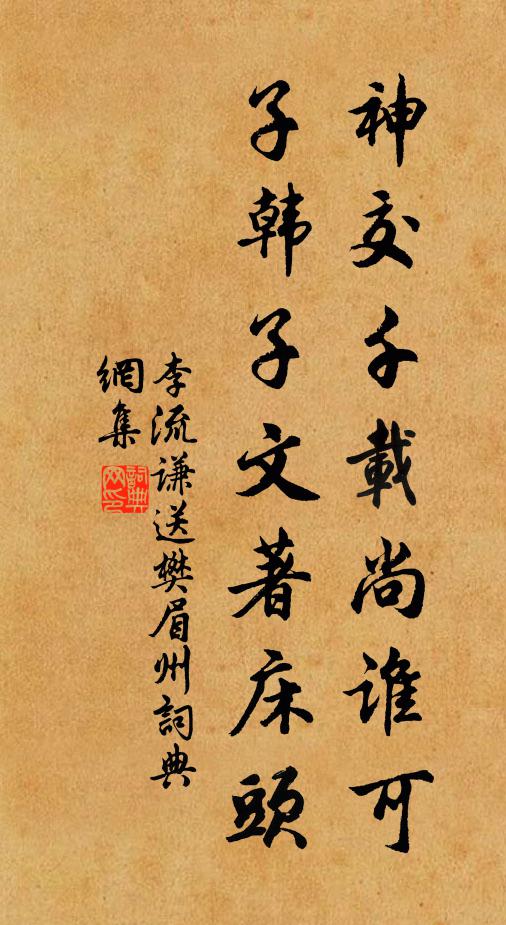 神交千載尚誰可
子韩子文著床頭
李流谦送樊眉州詞典
網集
詞典
网印